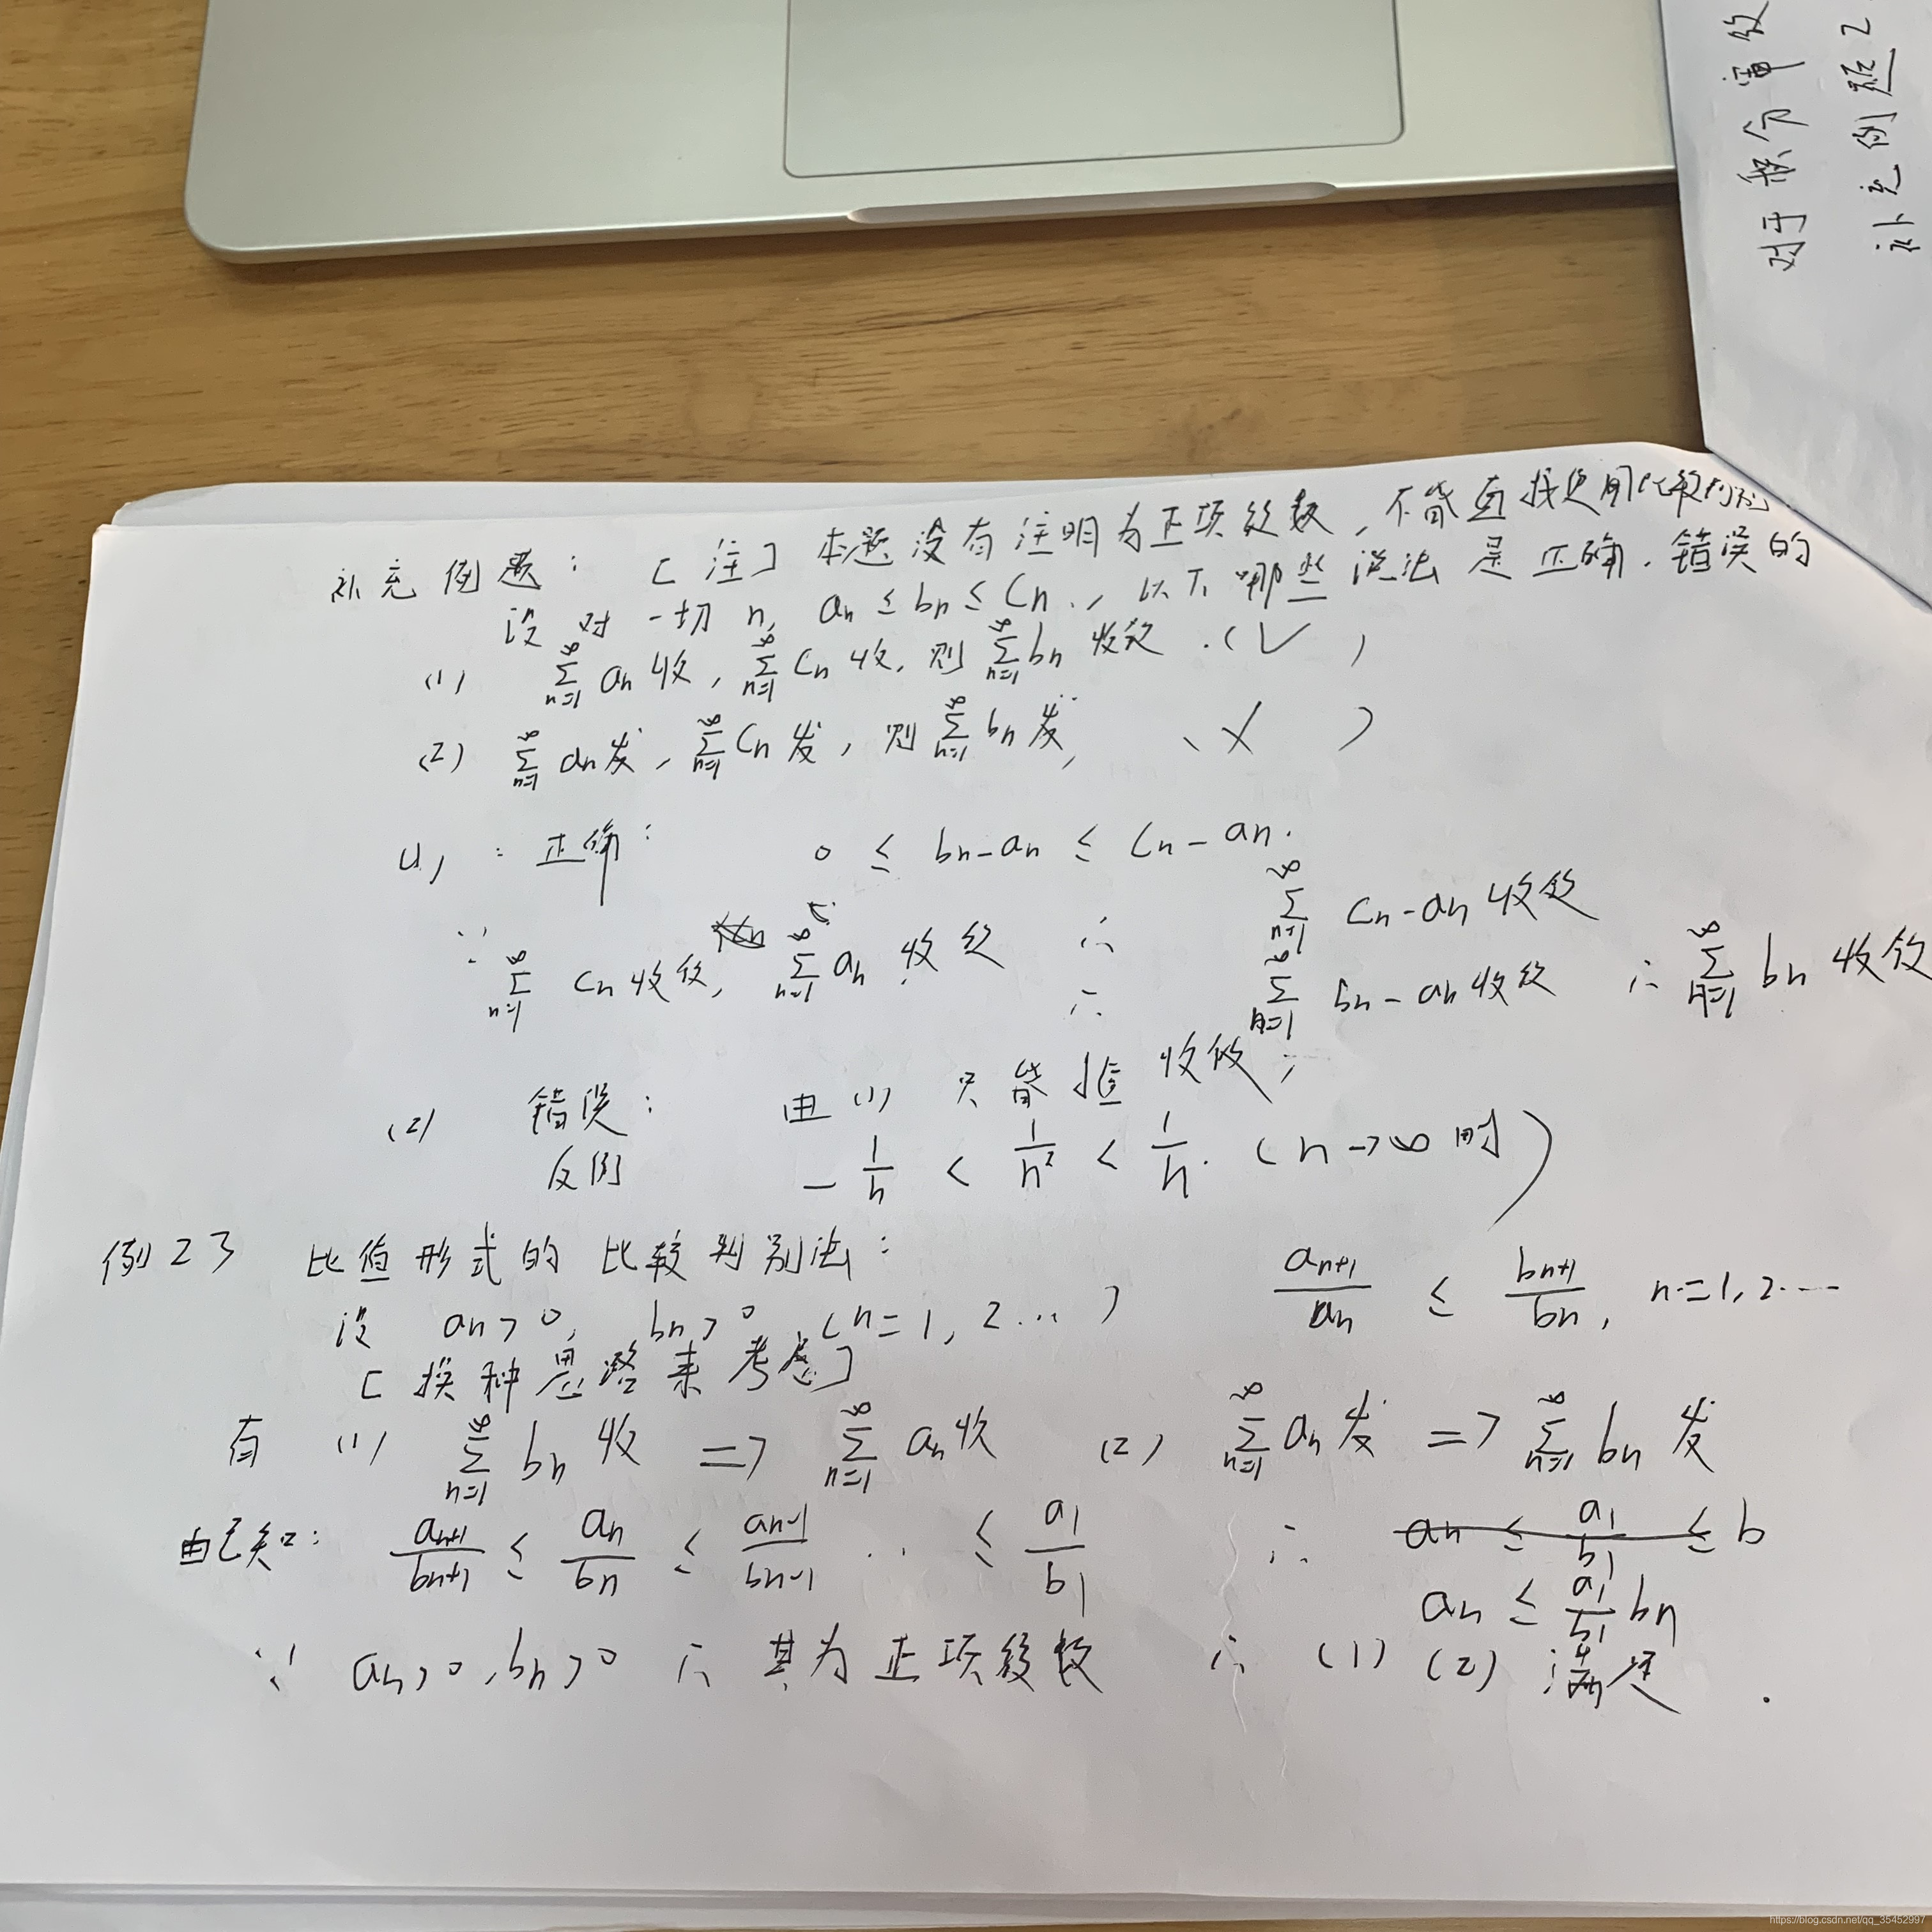 对于积分审敛
补充例题2
补充例题：[注] 本题没有注明为正项级数，不能直接使用比较判别
设对一切 n, an ≤ bn ≤ Cn, 以下哪些说法是正确．错误的
(1) ∑_{n=1}^∞ an 收, ∑_{n=1}^∞ Cn 收, 则 ∑_{n=1}^∞ bn 收敛．(✓)
(2) ∑_{n=1}^∞ an 发, ∑_{n=1}^∞ Cn 发, 则 ∑_{n=1}^∞ bn 发, (╳)
(1)：正确： 0 ≤ bn - an ≤ Cn - an.
∵ ∑_{n=1}^∞ Cn 收敛, ∑_{n=1}^∞ an 收敛 ∴ ∑_{n=1}^∞ Cn - an 收敛
∴ ∑_{n=1}^∞ bn - an 收敛 ∴ ∑_{n=1}^∞ bn 收敛
(2) 错误： 由(1) 只能推收敛;
反例 - 1/n < 1/n² < 1/n. (n→∞时)
例23 比值形式的比较判别法：
设 an > 0, bn > 0 (n=1, 2...) a_{n+1}/an ≤ b_{n+1}/bn, n=1, 2....
[换种思路来考虑]
有 (1) ∑_{n=1}^∞ bn 收 => ∑_{n=1}^∞ an 收 (2) ∑_{n=1}^∞ an 发 => ∑_{n=1}^∞ bn 发
由已知： a_{n+1}/b_{n+1} ≤ an/bn ≤ a_{n-1}/b_{n-1} ... ≤ a1/b1 ∴ an ≤ a1/b1 ≤ b
an ≤ a1/b1 bn
∵ an > 0, bn > 0 ∴ 其为正项级数 ∴ (1) (2) 满足.
https://blog.csdn.net/qq_35452997